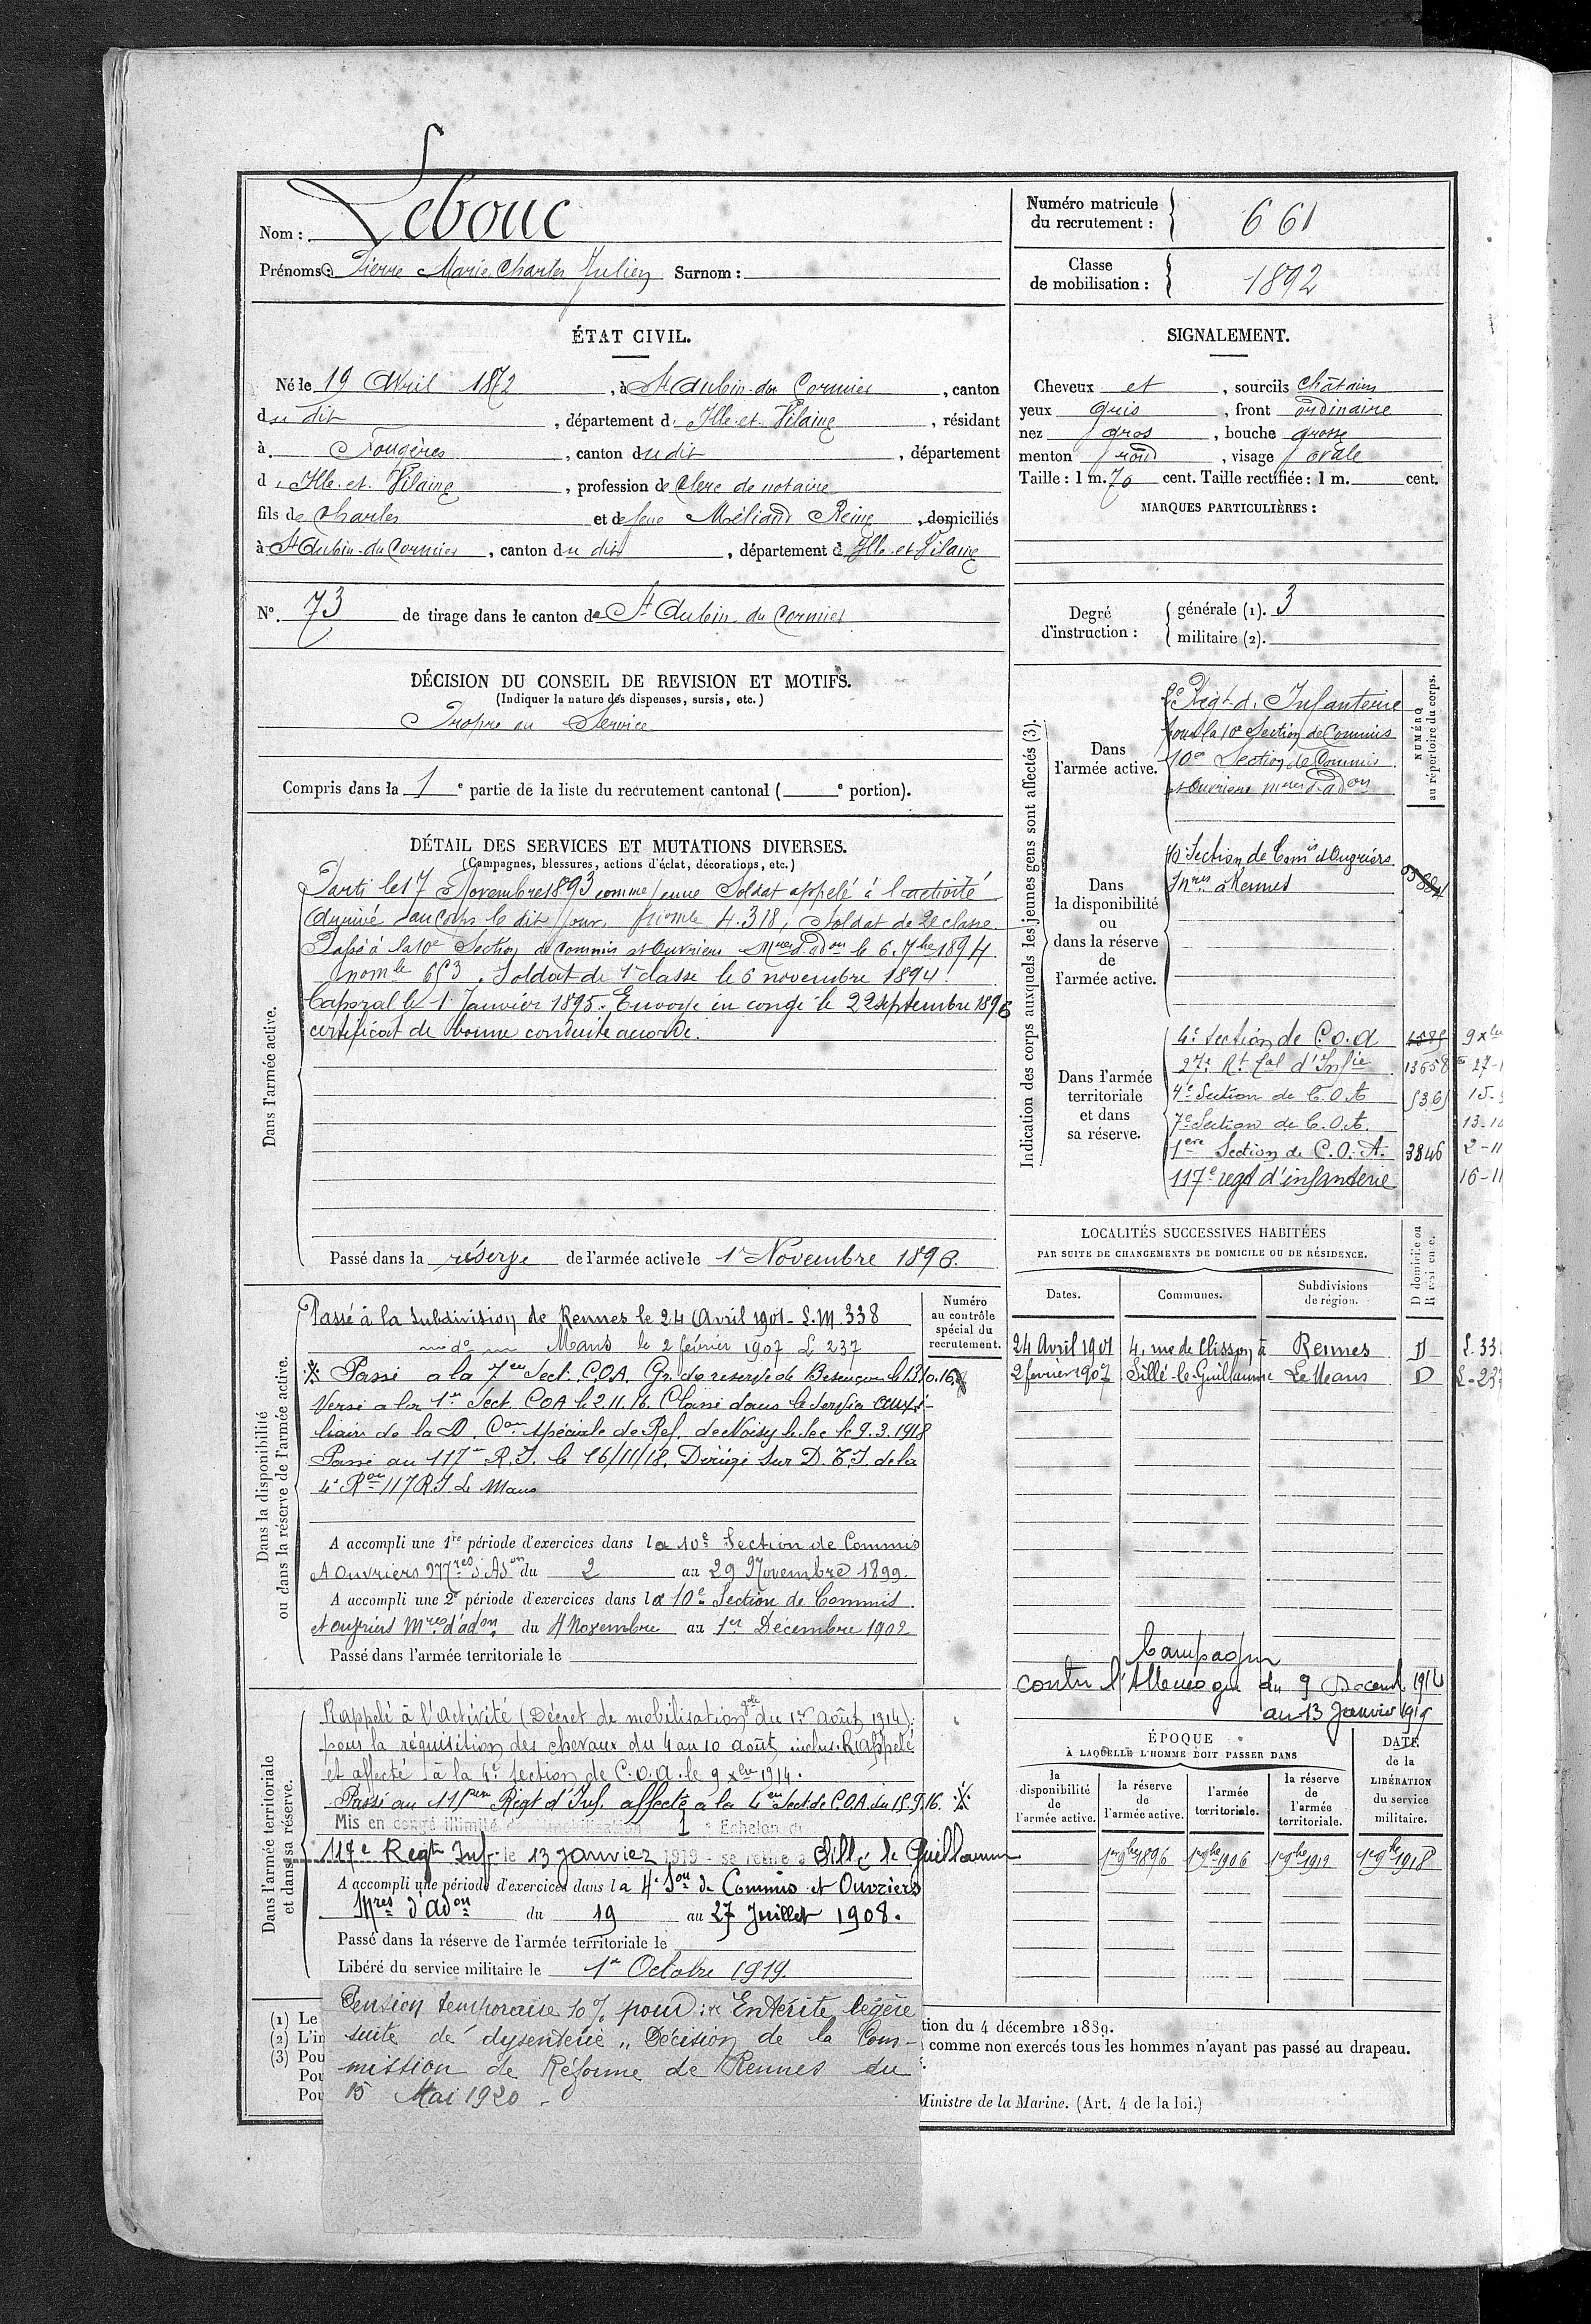 Nom : Lebouc
Prénoms : Pierre Marie Charles Julien Surnom :
Numéro matricule
du recrutement :
661
Classe
de mobilisation :
1892
ÉTAT CIVIL.
Né le 19 Avril 1872, à St Aubin-du-Cormier, canton
du dit, département d'Ille-et-Vilaine, résidant
à Fougères, canton du dit, département
d'Ille-et-Vilaine, profession de Clerc de notaire
fils de Charles et de feue Méliand Reine, domiciliés
à St Aubin-du-Cormier, canton du dit, département d'Ille-et-Vilaine
N° 73 de tirage dans le canton de St Aubin du Cormier
SIGNALEMENT.
Cheveux et, sourcils châtains
yeux gris, front ordinaire
nez gros, bouche grosse
menton rond, visage ovale
Taille : 1 m. 70 cent. Taille rectifiée : 1 m. cent.
MARQUES PARTICULIÈRES :
Degré
d'instruction :
générale (1). 3
militaire (2).
DÉCISION DU CONSEIL DE REVISION ET MOTIFS.
(Indiquer la nature des dispenses, sursis, etc.)
Propre au Service
Compris dans la 1e partie de la liste du recrutement cantonal ( e portion).
DÉTAIL DES SERVICES ET MUTATIONS DIVERSES.
(Campagnes, blessures, actions d'éclat, décorations, etc.)
Dans l'armée active.
Parti le 17 Novembre 1893 comme jeune Soldat appelé à l'activité
Arrivé au Corps le dit jour, 4.318, Soldat de 2e classe.
Passé à la 10e Section de Commis et Ouvriers Mres d'adon le 6. 7bre 1894
653. Soldat de 1e classe le 6 novembre 1894.
Caporal le 1r Janvier 1895. Envoyé en congé le 22 septembre 1896
certificat de bonne conduite accordé.
Passé dans la réserve de l'armée active le 1r Novembre 1896.
Indication des corps auxquels les jeunes gens sont affectés (3).
NUMÉRO
au répertoire du corps.
Dans
l'armée active.
2e Régt d'Infanterie
pour la 10e Section de Commis
10e Section de Commis
et Ouvriers mres d'adon
Dans
la disponibilité
ou
dans la réserve
de
l'armée active.
10e Section de Comis et Ouvriers
à Rennes
Dans l'armée
territoriale
et dans
sa réserve.
4e Section de C.O.A
27e Rt tal d'Infie 13658 27-1
4e Section de C.O.A 5365 15-9
7e Section de C.O.A. 13-10
1ère Section de C.O.A. 3846 2-11
117e regt d'infanterie 16-11
Dans la disponibilité
ou dans la réserve de l'armée active.
Numéro
au contrôle
spécial du
recrutement.
Passé à la Subdivision de Rennes le 24 Avril 1901 - L.M. 338
do Mans le 2 février 1907 L 237
Passé à la 7e Sect. C.O.A. Gr. de reserve de Besançon le 13.10.16
Versé à la 1re Sect. COA le 2.11.16. Classé dans le service auxi-
liaire de la D. Con spéciale de Ref. de Noisy le Sec le 9.3.1918
Passé au 117e R.I. le 16/11/18. Dirigé sur D.T.I. de la
4e Ron 117 R.I. Le Mans
A accompli une 1re période d'exercices dans la 10e Section de Commis
et Ouvriers Mres d'Adon du 2 au 29 Novembre 1899.
A accompli une 2e période d'exercices dans la 10e Section de Commis
et ouvriers Mres d'adon du 4 Novembre au 1er Décembre 1902
Passé dans l'armée territoriale le
LOCALITÉS SUCCESSIVES HABITÉES
PAR SUITE DE CHANGEMENTS DE DOMICILE OU DE RÉSIDENCE.
Dates. Communes. Subdivisions
de région. D domicile ou
R résidence.
24 Avril 1901 4, rue de Clisson à Rennes D
2 février 1907 Sillé-le-Guillaume Le Mans D L-237
Campagne
contre l'Allemagne du 9 Décemb. 1914
au 13 Janvier 1919
Dans l'armée territoriale
et dans sa réserve.
Rappelé à l'activité (Décret de mobilisation gale du 1er Août 1914)
pour la réquisition des chevaux du 4 au 10 août inclus. Rappelé
et affecté à la 4e Section de C.O.A. le 9 Xbre 1914.
Passé au 115e Régt d'Inf. affecté à la 4e Sect de C.O.A du 15.9.16.
Mis en congé illimité de démobilisation 1e Echelon du
117e Regt Inf. le 13 Janvier 1919 - se retire à Sillé le Guillaume
A accompli une période d'exercices dans la 4e Son de Commis et Ouvriers
Mres d'adon du 19 au 27 Juillet 1908.
Passé dans la réserve de l'armée territoriale le
Libéré du service militaire le 1er Octobre 1919.
ÉPOQUE
À LAQUELLE L'HOMME DOIT PASSER DANS
DATE
de la
LIBÉRATION
du service
militaire.
la
disponibilité
de
l'armée active.
la réserve
de
l'armée active.
l'armée
territoriale.
la réserve
de
l'armée
territoriale.
1er 9bre 1896 1er 9bre 1906 1er 9bre 1912 1er 9bre 1918
Pension temporaire 10% pour : "Entérite légère
suite de dysenterie" Décision de la Com-
mission de Réforme de Rennes du
15 Mai 1920 -
(1) Le
(2) L'in
(3) Pou
Pou
Pou
tion du 4 décembre 1889.
comme non exercés tous les hommes n'ayant pas passé au drapeau.
Ministre de la Marine. (Art. 4 de la loi.)